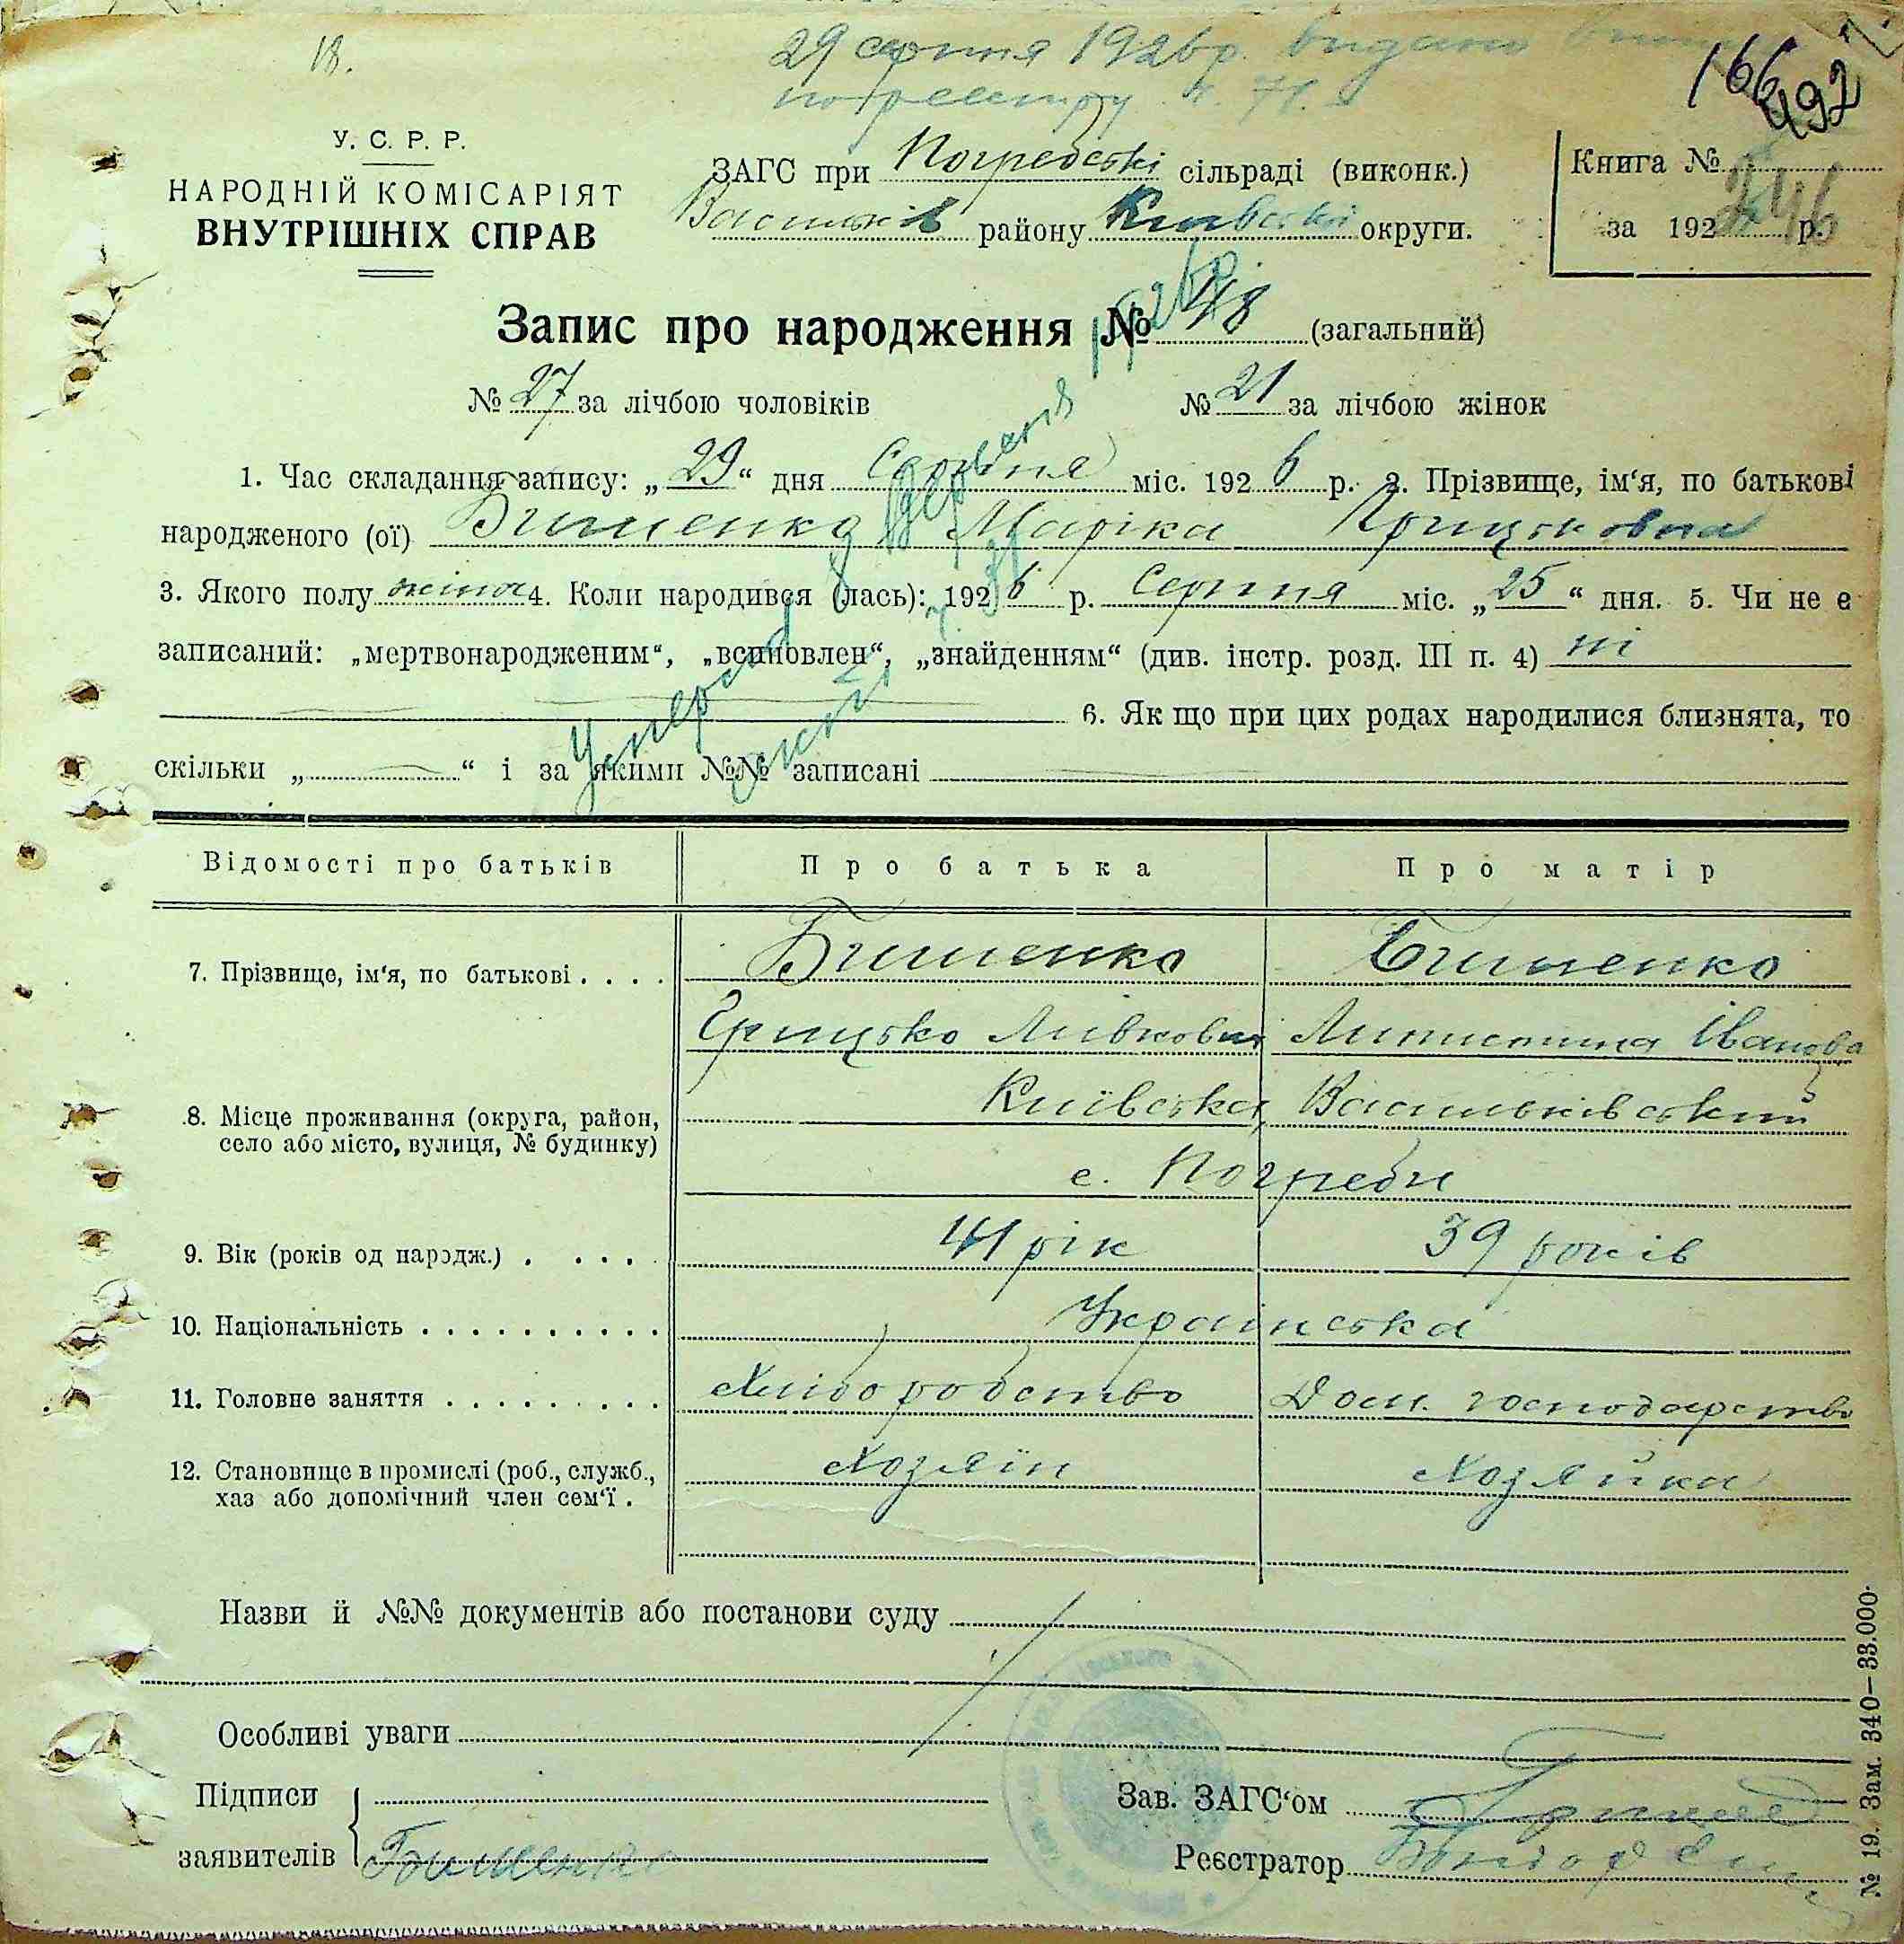 18.
29 серпня 1926 р. видано
по реєстру ч. 71.
166
492
У. С. Р. Р.
НАРОДНІЙ КОМІСАРІЯТ
ВНУТРІШНІХ СПРАВ
ЗАГС при Погребські сільраді (виконк.)
Васильків району Київські округи.
Книга №
за 192 р.
246
Запис про народження № 48 (загальний)
№ 27 за лічбою чоловіків № 21 за лічбою жінок
1. Час складання запису: „29“ дня Серпня міс. 1926 р. 2. Прізвище, ім‘я, по батькові
народженого (ої) Бишенко Маріка Грицьковна
3. Якого полу жіноч 4. Коли народився (лась): 1926 р. Серпня міс. „25“ дня. 5. Чи не є
записаний: „мертвонародженим“, „всиновлен“, „знайденням“ (див. інстр. розд. III п. 4) ні
6. Як що при цих родах народилися близнята, то
скільки „ “ і за якими №№ записані
Відомості про батьків Про батька Про матір
7. Прізвище, ім‘я, по батькові . . . . Бишенко Бишенко
Грицько Іванова
8. Місце проживання (округа, район, село або місто, вулиця, № будинку) Київська, Васильківський
с. Погреби
9. Вік (років од народж.) . . . . . 41 рік 39 років
10. Національність . . . . . . . . . . . Українська
11. Головне заняття . . . . . . . . . Хліборобство Дом. господарство
12. Становище в промислі (роб., служб., хаз або допомічний член сем‘ї . Хозяїн Хозяйка
Назви й №№ документів або постанови суду
Особливі уваги
Підписи
заявителів Бишенко
Зав. ЗАГС‘ом
Реєстратор
№ 19. Зам. 340—33.000.